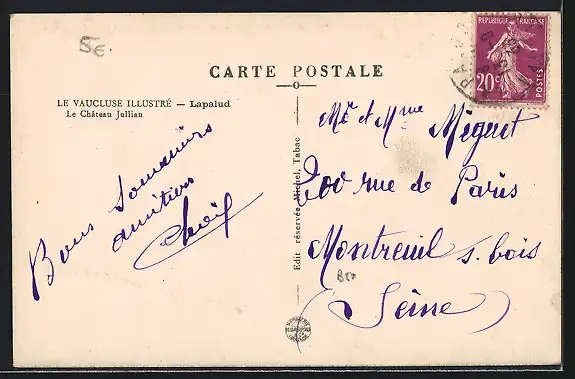 5€
RÉPUBLIQUE FRANÇAISE
20c
POSTES
CARTE POSTALE
LE VAUCLUSE ILLUSTRÉ — Lapalud
Le Château Jullian
Bons Souvenirs
amitiés
Mr et Mme Méguet
200 rue de Paris
Montreuil s. bois
(Seine)
Edit réservée Michel, Tabac